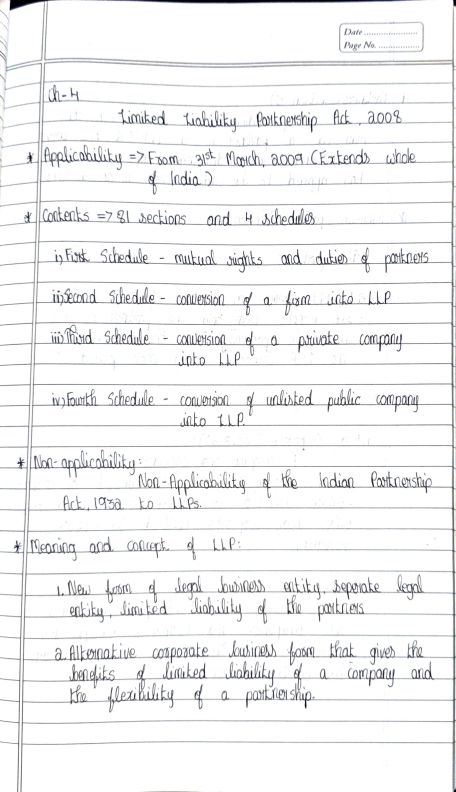 Date ....................
Page No. ................
Ch-4
Limited Liability Partnership Act, 2008
* Applicability => From 31st March, 2009 (Extends whole
of India)
* Contents => 81 sections and 4 schedules
i) First Schedule - mutual rights and duties of partners
ii) Second Schedule - conversion of a firm into LLP
iii) Third Schedule - conversion of a private company
into LLP
iv) Fourth Schedule - conversion of unlisted public company
into LLP.
* Non-applicability:
Non-Applicability of the Indian Partnership
Act, 1932 to LLPs.
* Meaning and concept of LLP:
1. New form of legal business entity, seperate legal
entity, limited liability of the partners
2. Alternative corporate business form that gives the
benefits of limited liability of a company and
the flexibility of a partnership.